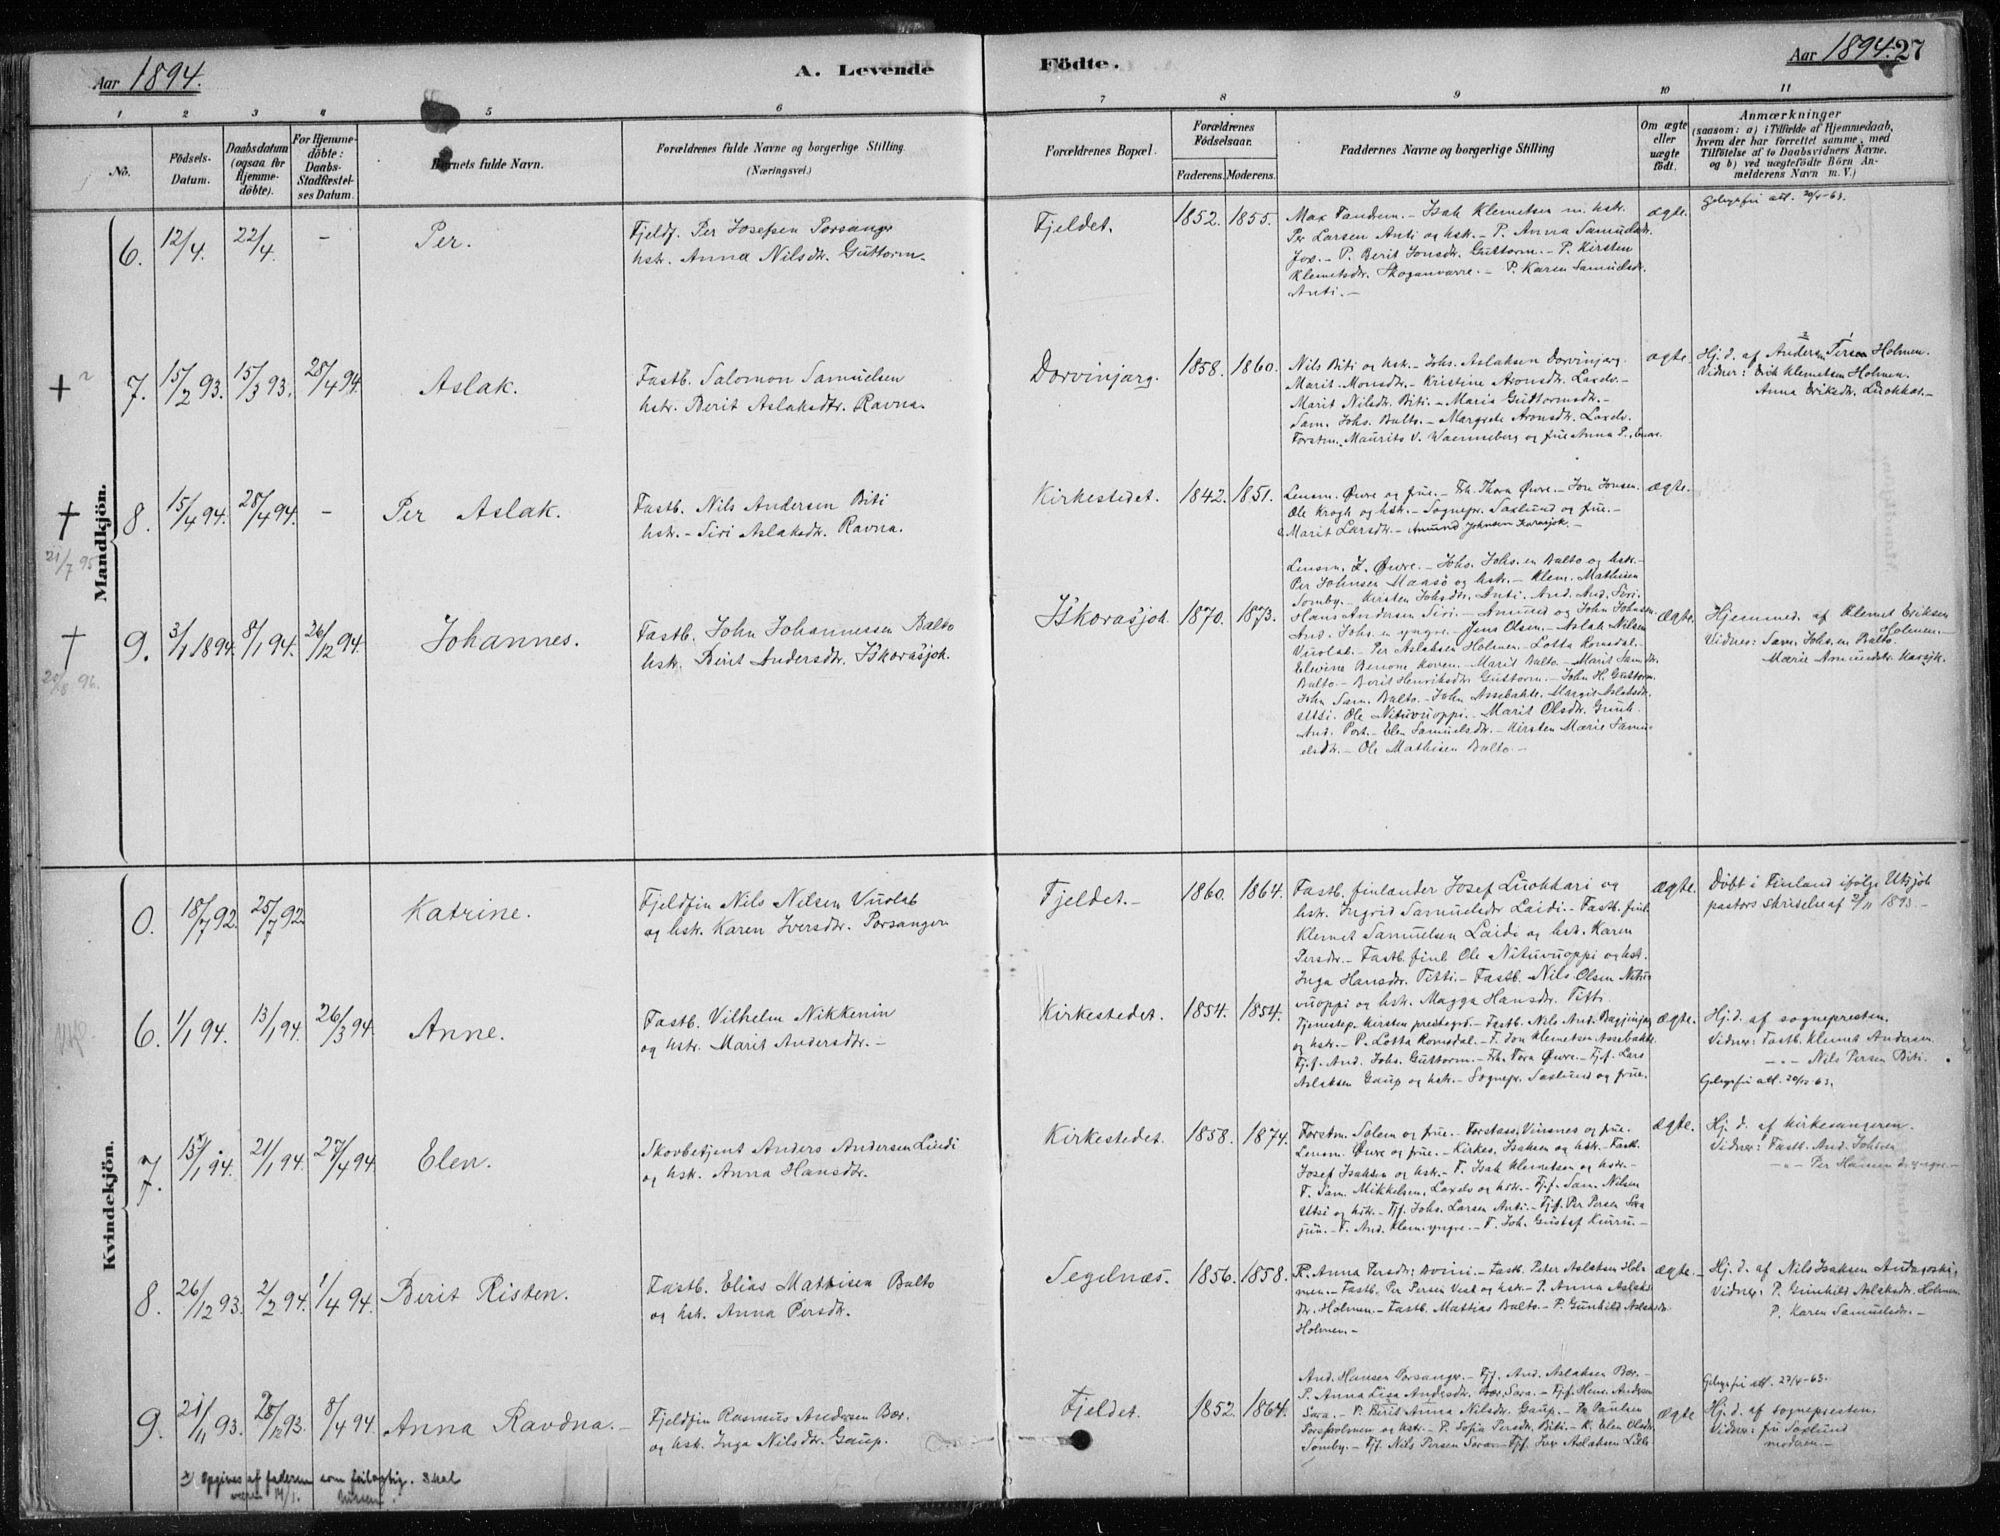 Aar 1894.
A. Levende
Födte.
Aar 1894. 27
1
2
3
4
5
6
7
8
9
10
11
No.
Födsels-
Datum.
Daabsdatum
(ogsaa for
Hjemme-
döbte).
For Hjemme-
döbte:
Daabs-
Stadfæstel-
ses Datum.
Barnets fulde Navn.
Forældrenes fulde Navne og borgerlige Stilling
(Næringsvei.)
Forældrenes Bopæl.
Forældrenes
Födselsaar.
Faderens.
Moderens.
Faddernes Navne og borgerlige Stilling
Om ægte
eller
uægte
födt.
Anmærkninger
(saasom: a) i Tilfælde af Hjemmedaab,
hvem der har forrettet samme, med
Tilföielse af to Daabsvidners Navne,
og b) ved uægtefödte Börn An-
melderens Navn m. V.)
Mandkjön.
6.
12/4.
22/4.
-
Per.
Fjeldf. Per Josefsen Porsanger
hstr. Anna Nilsdtr. Guttorm.
Fjeldet.
1852.
1855.
Max Tandem. - Isak Klemetsen m. hstr.
Per Larsen Anti og hstr. - P. Anna Samuelsdtr.
Jox. - P. Berit Jonsdtr. Guttorm. - P. Kirsten
Klemetsdtr. Skoganvarre. - P. Karen Samuelsdr.
Anti. -
ægte.
7.
15/2 93.
15/3 93.
28/4 94.
Aslak.
Fastb. Salomon Samuelsen
hstr. Berit Aslaksdtr. Ravna.
Dorvinjarg.
1858.
1860.
Nils Biti og hstr. - Johs. Aslaksen Dorvinjarg.
Marit Monsdtr. - Kristine Aronsdtr. Laxelv. -
Marit Nilsdtr. Biti. - Maria Guttormsdtr. -
Sam. Johs. Balto. - Margrete Aronsdtr. Laxelv.
Forstm. Maurits V. Waenneberg og frue Anna P., Enare.
ægte.
Hj. d. af Anders Holmen.
Vidner: Erik Klemetsen Holmen.
Anna Eriksdtr. Luokkat. -
8.
15/4 94.
28/4 94.
-
Per Aslak.
Fastb. Nils Andersen Biti
hstr. - Siri Aslaksdtr. Ravna.
Kirkestedet.
1842.
1851.
Lensm. Øvre og frue. - Frk. Thora Øvre. - Jon Jonsen.
Ole Krogh og hstr. - Sognepr. Saxlund og frue. -
Marit Larsdtr. - Amund Johnsen Karasjok. -
ægte.
21/7 95
9.
3/1 1894.
8/1 94.
26/12 94.
Johannes.
Fastb. John Johannessen Balto
hstr. Berit Andersdtr. Iskorasjok.
Iskorasjok.
1870.
1873.
Lensm. Z. Øvre. - Johs. Johs.en Balto og hstr. -
Per Johnsen Maasø og hstr. - Klem. Mathisen
Somby. - Kirsten Johsdtr. Anti. And. And. Siri.
Hans Andersen Siri. - Amund og John Johnsen
And. Johs.en yngre. - Jens Olsen. - Aslak Nilsen
Vuolab. - Per Aslaksen Holmen. - Lotta Romsdal. -
Elevine Benone Koven. - Marit Balto. - Marit Sam.dtr.
Balto. - Berit Henriksdtr. Guttorm. - John H. Guttorm.
John Sam. Balto. - John Assebakte. Margit Aslaksdtr.
Utsi. Ole Nituvuoppi. - Marit Olsdtr. Grunh.
And. Port. - Elen Samuelsdtr. - Kirsten Marie Samu-
elsdtr. - Ole Mathisen Balto. -
ægte.
Hjemmed. af Klemet Eriksen
Holmen. -
Vidner: Sam. Johs.en Balto.
Marie Amundstr. Karasjk.
20/8 96.
Kvindekjön.
0.
18/7 92.
25/7 92.
Katrine.
Fjeldfin Nils Nilsen Vuolab
og hstr. Karen Iversdtr. Porsanger
Fjeldet. -
1860.
1864.
Fastb. finlænder Josef Luokkari og
hstr. Ingrid Samuelsdtr Laidi. - Fastb. finl.
Klemet Samuelsen Laidi og hstr. Karen
Persdtr. - Fastb. finl Ole Nituvuoppi og hst.
Inga Hansdtr. Titti. - Fastb. Nils Olsen Nitu-
vuoppi og hstr. Magga Hansdtr. Titti.
ægte.
Döbt i Finland ifölge Utsjok
pastors skrivelse af 2/11 1893. -
6.
1/1 94.
13/1 94.
26/3 94.
Anne.
Fastb. Vilhelm Nikkenin
og hstr. Marit Andersdtr. -
Kirkestedet.
1854.
1854.
Tjenestep. Kirsten prestegrd. - Fastb. Nils And. Baggjinjarg
og hstr. - P. Lotta Romsdal. - F. Jon Klemetsen Assebakte.
Fj.f. And. Johs. Guttorm. - Frk. Tora Øvre. - Fj.f. Lars
Aslaksen Gaup og hstr. - Sognepr. Saxlund og frue.
ægte.
Hj. d. af sognepresten.
Vidner: Fastb. Klemet Andersen.
-"- Nils Persen Biti.
7.
15/1 94.
21/1 94.
27/4 94.
Elen.
Skovbetjent Anders Andersen Laidi
og hstr. Anna Hansdtr.
Kirkestedet.
1858.
1874.
Forstm. Salem og frue. - Forstass. Vinsnes og frue.
Lensm. Øvre og frue. - Kirkes. Isaksen og hstr. - Fastb.
Josef Isaksen og hstr. - F. Isak Klemetsen og hstr. -
F. Sam. Mikkelsen, Laxelv og hstr. - Fj.f. Sam. Nilsen
Utsi og hstr. - Fj.f. Johs. Larsen Anti. - Fj.f. Per Persen
F. And. Klem. yngre. - F. Joh. Gustaf Kurru. -
ægte.
Hj. d. af kirkesangeren.
Vidner: Fastb. And. Johsen
-"- Per Hansen d. yngre. -
8.
26/12 93.
2/2 94.
1/4 94.
Berit Risten.
Fastb. Elias Mathisen Balto
og hstr. Anna Persdtr.
Segelnæs.
1856.
1858.
P. Anna Persdtr: Avini. - Fastb. Peter Aslaksen Hol-
men. - Fastb. Per Persen Vest og hstr. - P. Anna Aslaks-
dtr. Holmen. - Fastb. Mattias Balto. - P. Gunhild Aslaksdtr.
Holmen. -
ægte. -
Hj. d. af Nils Isaksen
Vidner: P. Gunhild Aslaksdtr. Holmen.
P. Karen Samuelsdtr. -
9.
21/11 93.
28/12 93.
8/4 94.
Anna Ravdna. -
Fjeldfin Rasmus Andersen Bær.
og hstr. Inga Nilsdtr. Gaup.
Fjeldet.
1852.
1864.
And. Hansen Porsanger. - Fj. And. Aslaksen Bær. -
P. Anna Lisa Andersdtr. Bær. Sara. - Fj.f. Henr. Andersen
Sara. - P. Berit Anna Nilsdtr. Gaup. - Paulsen
Torsholmen og hstr. - P. Sofia Persdtr. Biti. - P. Elen Olsdtr.
Somby. - Fj.f. Nils Persen Sara. - Fj.f. Iver Aslaksen Lille
ægte
Hj. d. af sognepresten.
Vidner: fru Saxlund
moderen. -
x) Opgives af faderen som feilagtig. Skal
være 14/1.